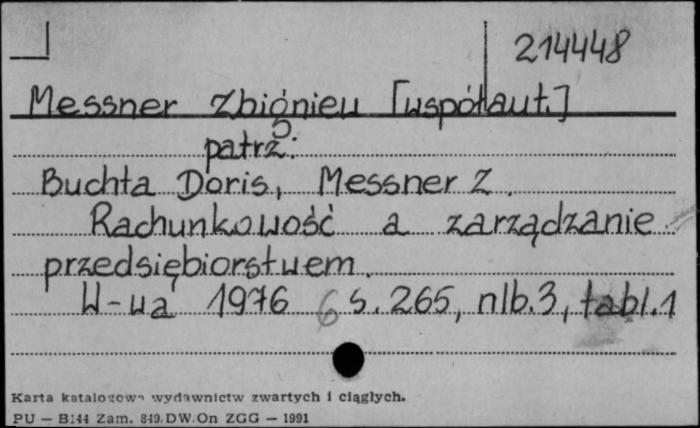 214448
Messner Zbigniew [współaut.]
patrz:
Buchta Doris, Messner Z.
Rachunkowość a zarządzanie
przedsiębiorstwem.
W-wa 1976 s. 265, nlb. 3, tabl. 1
Karta katalogowa wydawnictw zwartych i ciągłych.
PU — B144 Zam. 849. DW. On ZGG — 1991